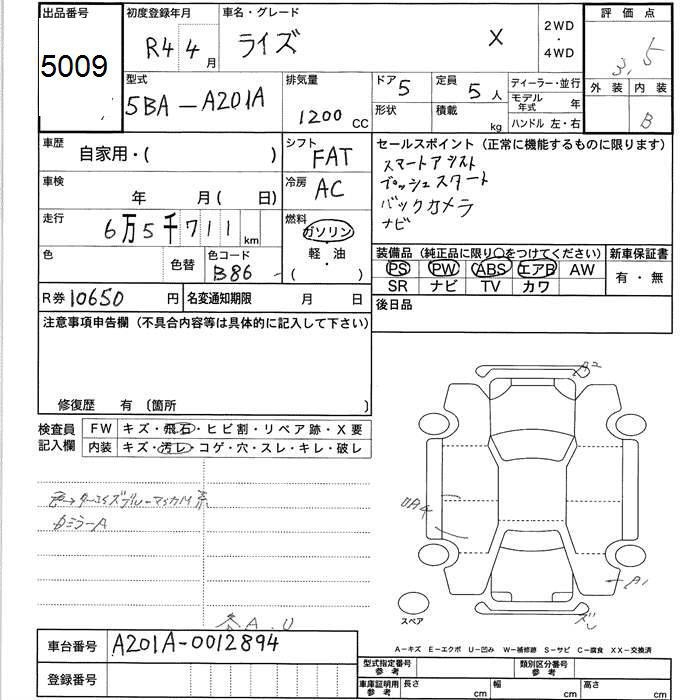 出品番号
5009
初度登録年月
R4 4月
車名・グレード
ライズ X
2WD
・
4WD
評価点
3.5
外装 内装
B
型式
5BA-A201A
排気量
1200 CC
ドア 5
定員 5人
ディーラー・並行
モデル年式 年
形状
積載 kg
ハンドル 左・右
車歴
自家用・( )
シフト
FAT
セールスポイント (正常に機能するものに限ります)
スマートアシスト
プッシュスタート
バックカメラ
ナビ
車検
年 月(日)
冷房
AC
走行
6万5千711km
燃料
ガソリン
・
軽油
・
( )
色
色替
色コード
B86
装備品 (純正品に限り○をつけてください)
PS PW ABS エアB AW
SR ナビ TV カワ
新車保証書
有・無
R券 10650円
名変通知期限 月 日
後日品
注意事項申告欄 (不具合内容等は具体的に記入して下さい)
修復歴 有 〔箇所 〕
検査員
記入欄
FW キズ・飛石・ヒビ割・リペア跡・X要
内装 キズ・汚レ・コゲ・穴・スレ・キレ・破レ
A2
UA4
A1
ズレ
カミラーA
各A.U
スペア
A-キズ E-エクボ U-凹み W-補修跡 S-サビ C-腐食 XX-交換済
車台番号
A201A-0012894
登録番号
型式指定番号
参考
類別区分番号
参考
車庫証明用
参考
長さ cm
幅 cm
高さ cm